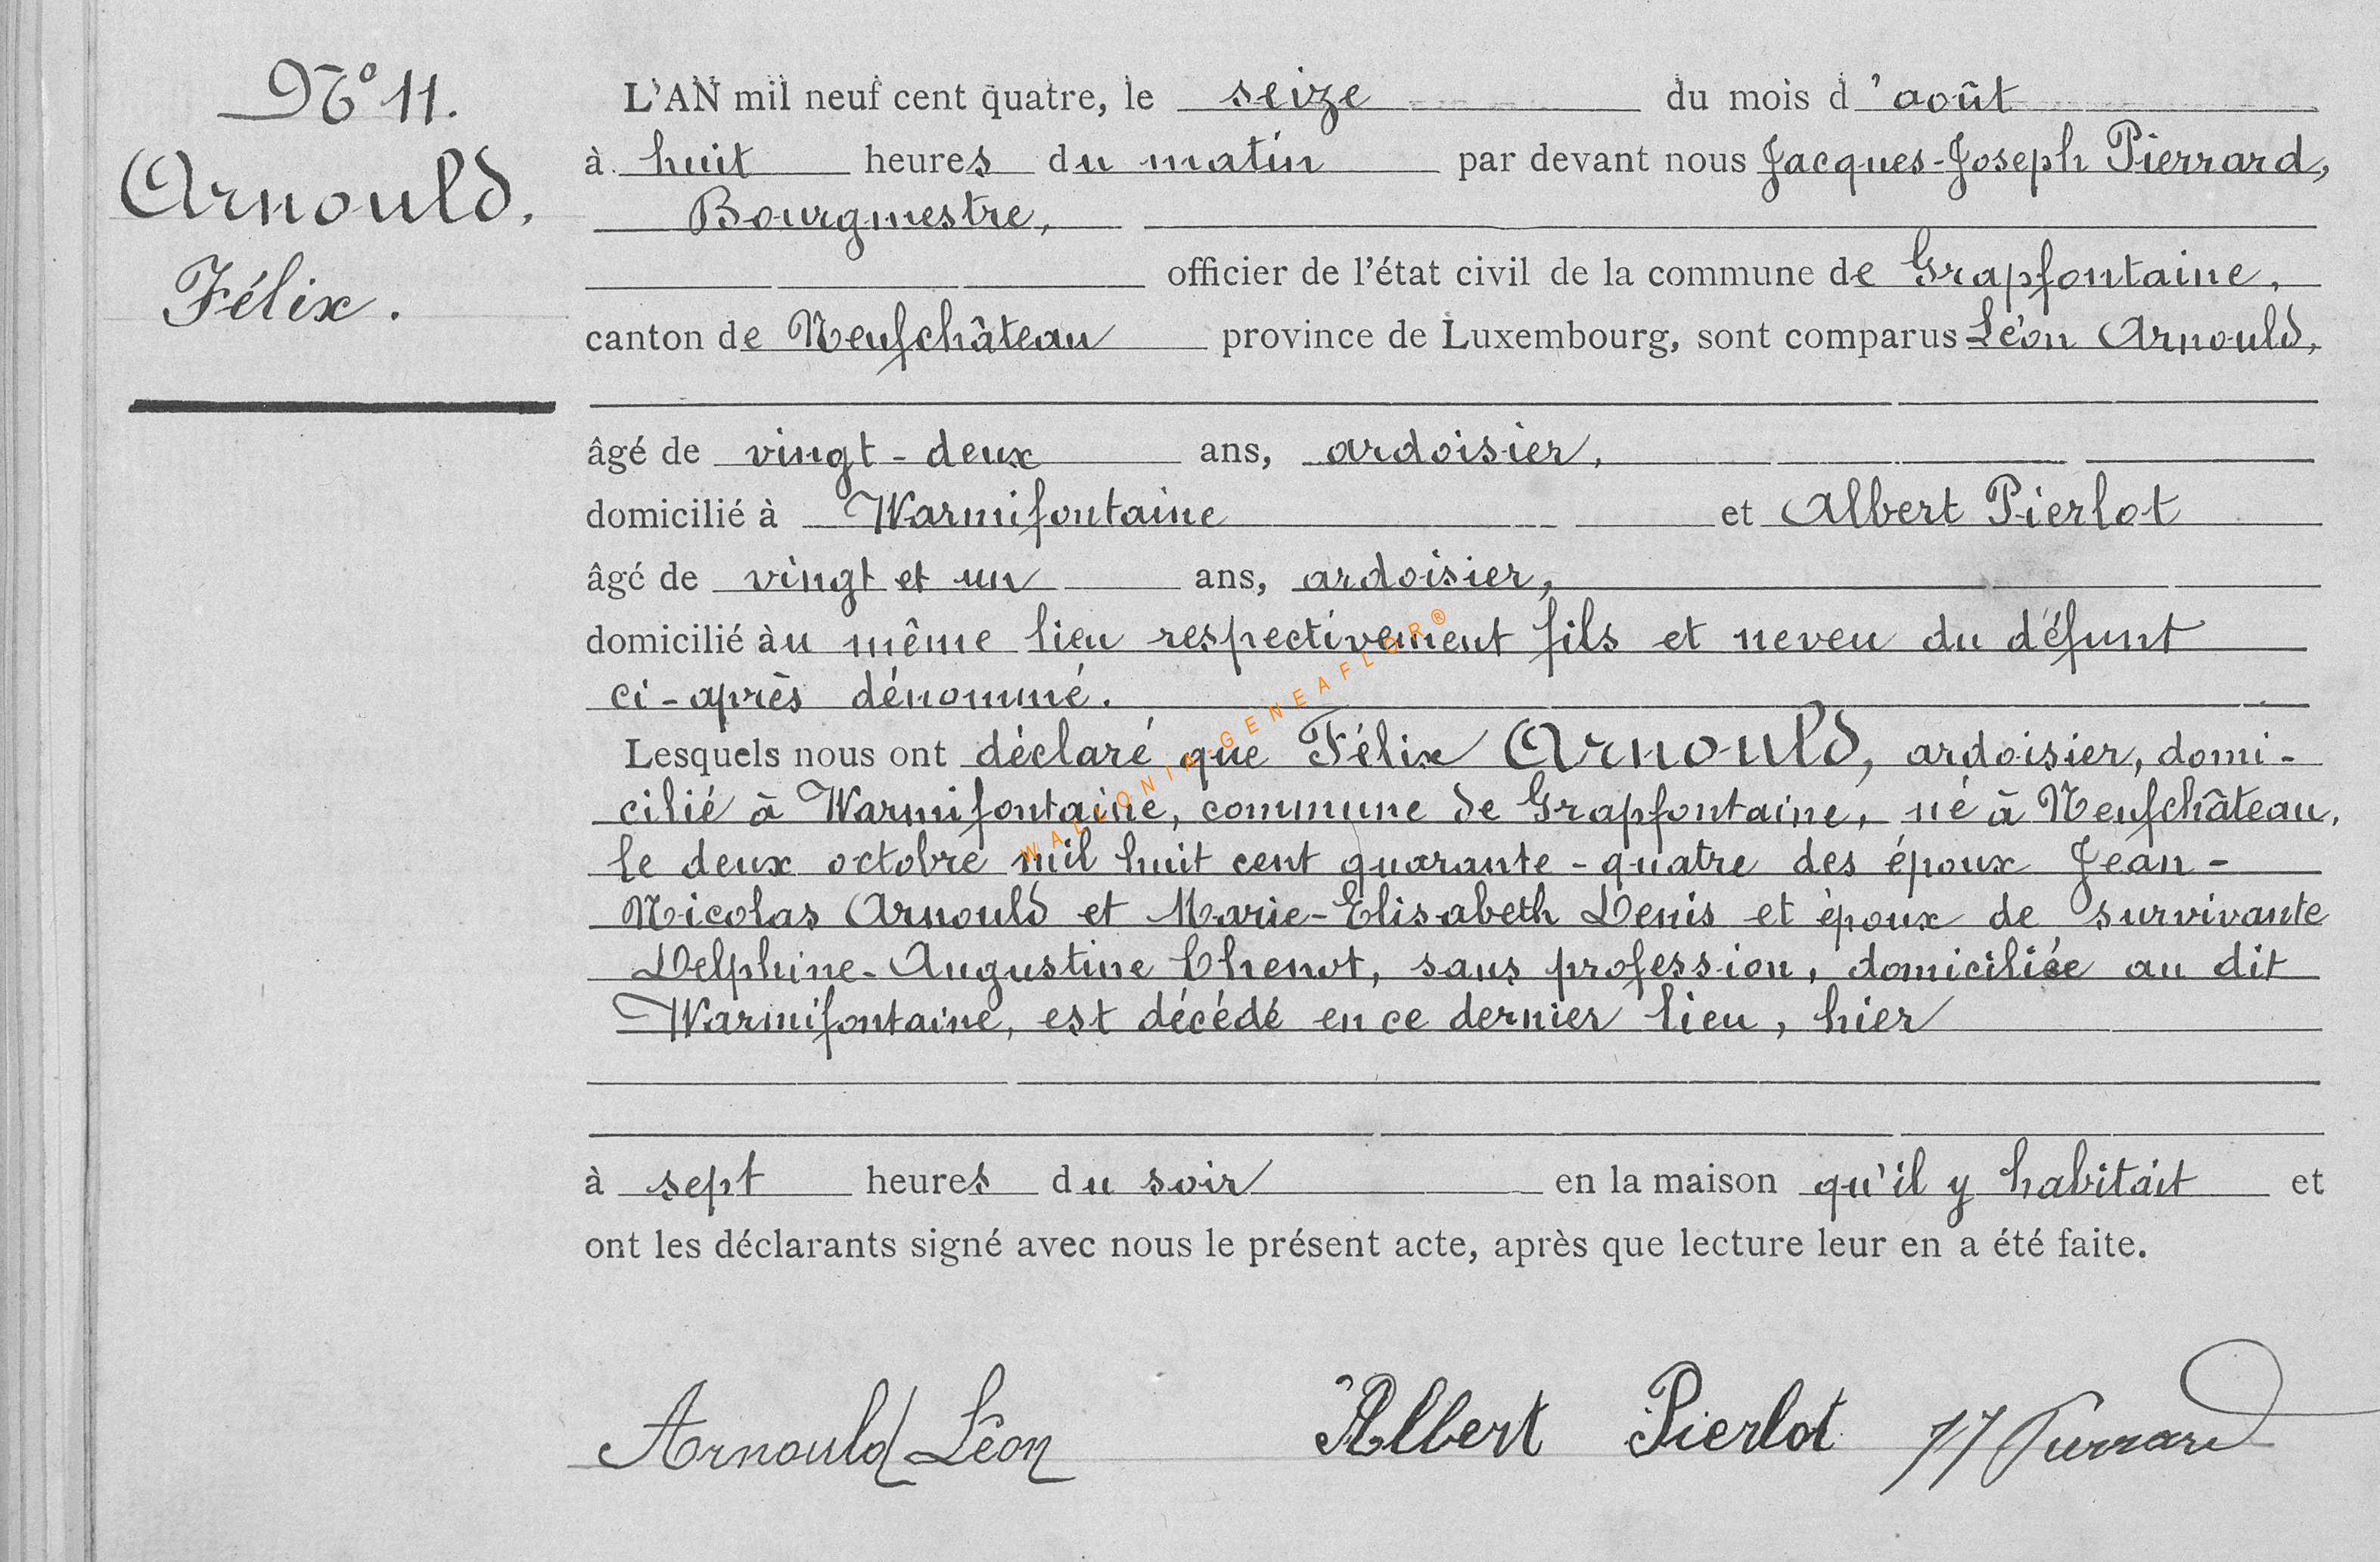 N° 11.
Arnould,
Félix.
L'AN mil neuf cent quatre, le seize du mois d'août
à huit heures du matin par devant nous Jacques-Joseph Pierrard,
Bourgmestre,
officier de l'état civil de la commune de Grapfontaine,
canton de Neufchâteau province de Luxembourg, sont comparus Léon Arnould,
âgé de vingt-deux ans, ardoisier,
domicilié à Warmifontaine et Albert Pierlot
âgé de vingt et un ans, ardoisier,
domicilié àu même lieu respectivement fils et neveu du défunt
ci-après dénommé.
Lesquels nous ont déclaré que Félix Arnould, ardoisier, domi-
cilié à Warmifontaine, commune de Grapfontaine, né à Neufchâteau,
le deux octobre mil huit cent quarante-quatre des époux Jean-
Nicolas Arnould et Marie-Elisabeth Denis et époux de survivante
Delphine-Augustine Chenot, sans profession, domiciliée au dit
Warmifontaine, est décédé en ce dernier lieu, hier
à sept heures du soir en la maison qu'il y habitait et
ont les déclarants signé avec nous le présent acte, après que lecture leur en a été faite.
Arnould Léon Albert Pierlot JJ Pierrard
WALLONIA-GENEAFLOR®